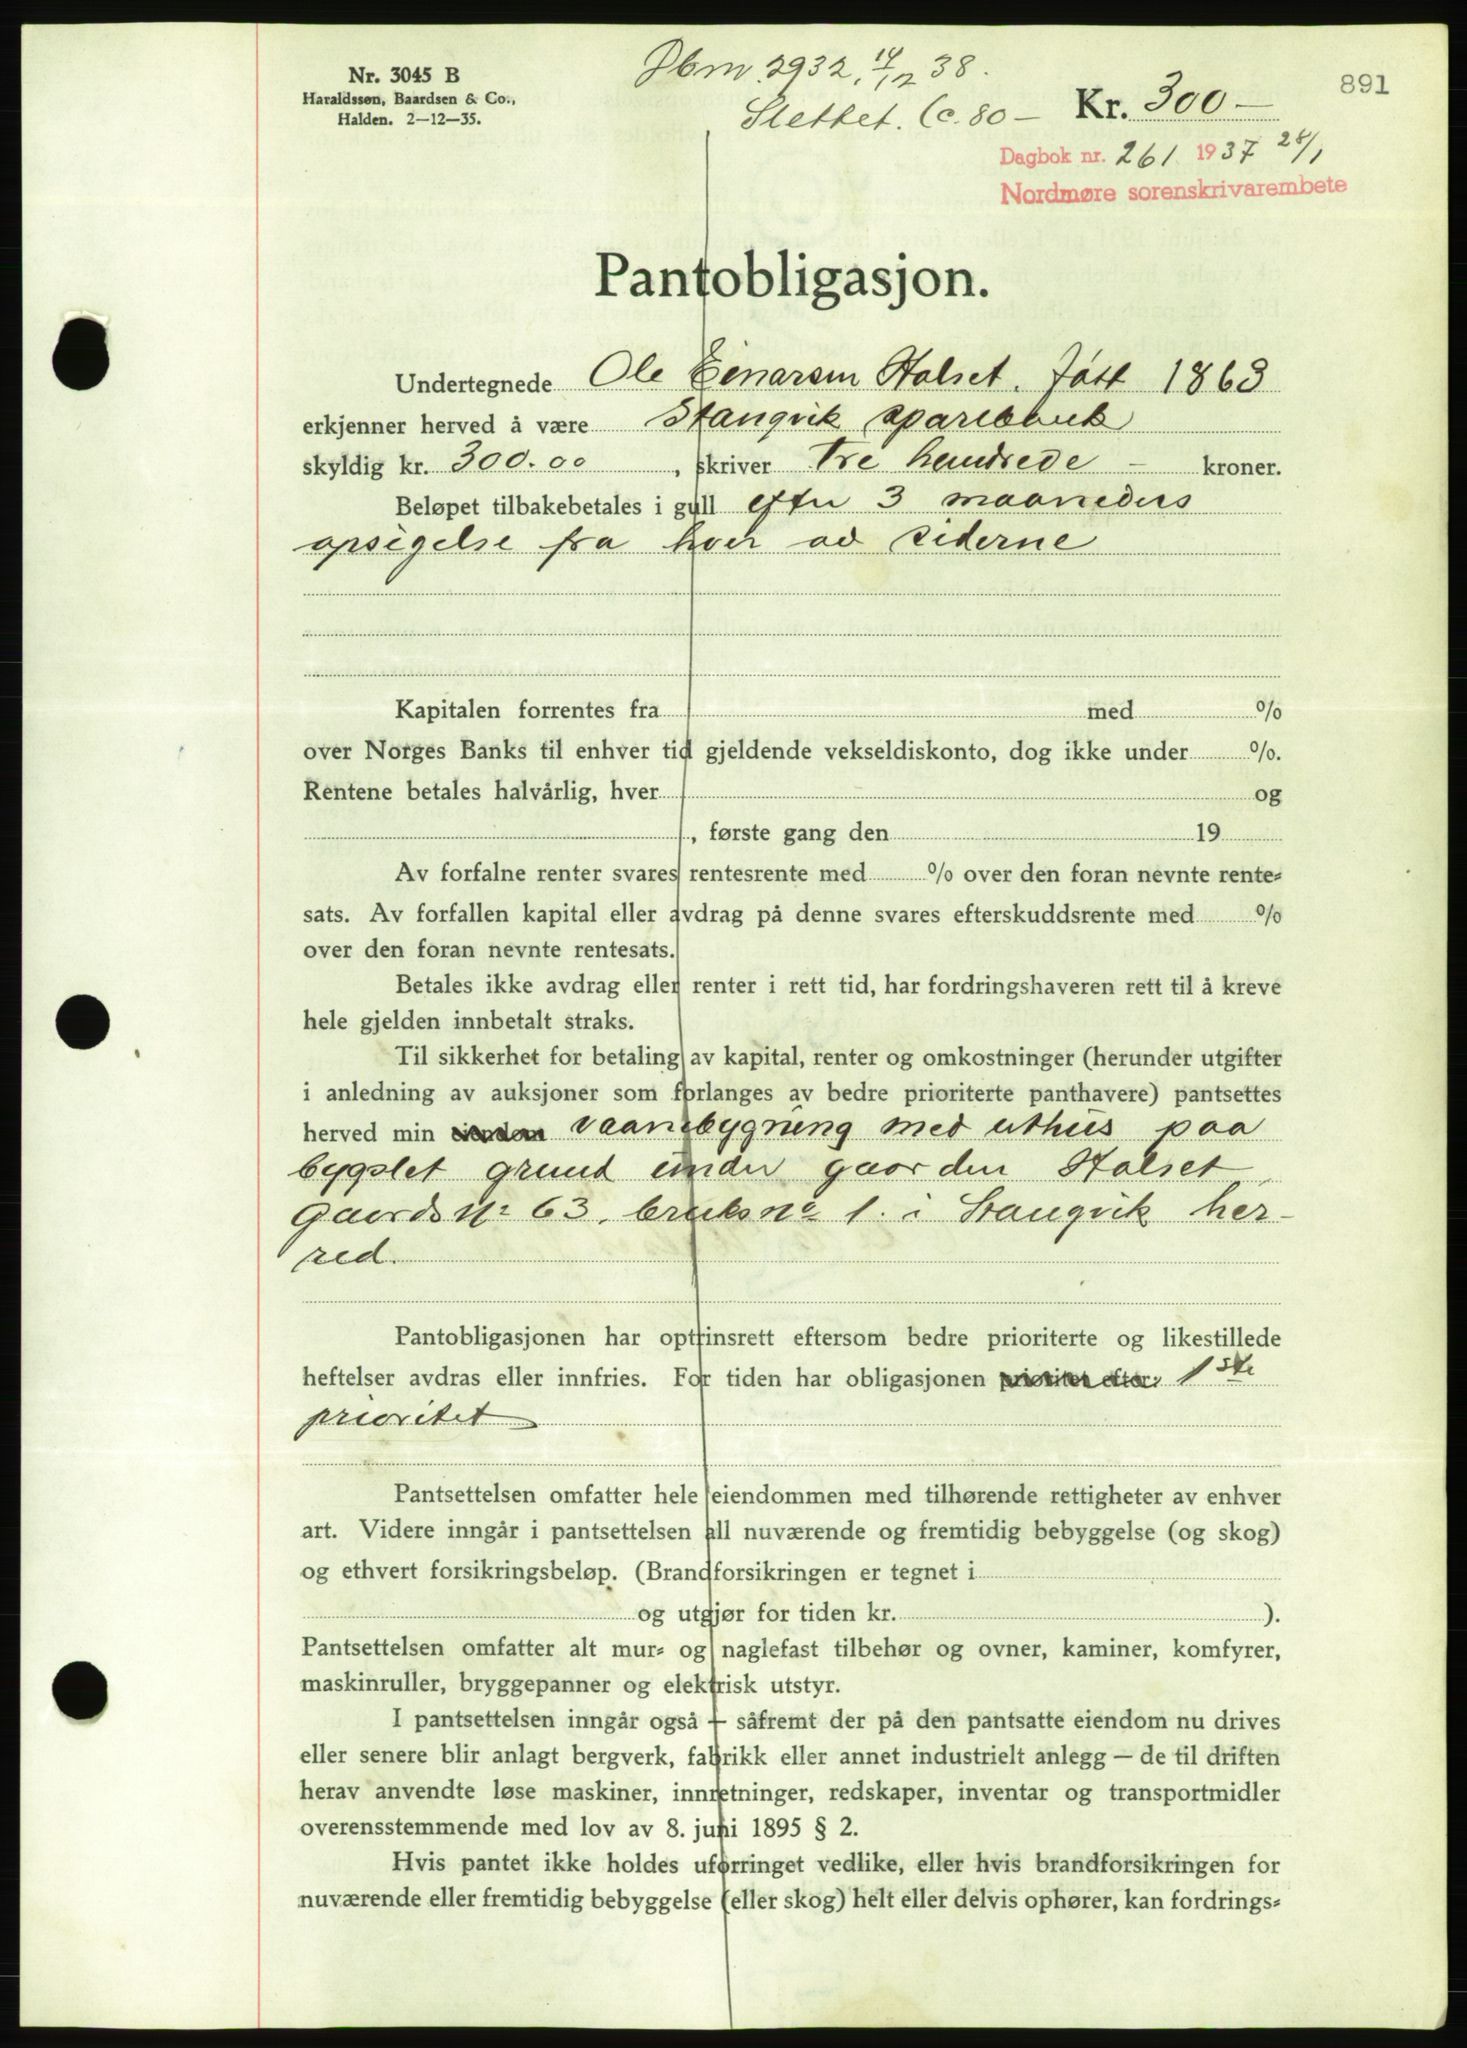 Nr. 3045 B
Haraldssøn, Baardsen & Co.,
Halden. 2—12—35.
Dbnr. 2932, 14/12 38.
Slettet. (c. 80 —
Kr. 300 —
891
Dagbok nr. 261 1937 28/1
Nordmøre sorenskrivarembete
Pantobligasjon.
Undertegnede Ole Einarsen Halset. født 1863
erkjenner herved å være Stangvik sparebank
skyldig kr. 300.00, skriver Tre hundrede — kroner.
Beløpet tilbakebetales i gull efter 3 maaneders
opsigelse fra hver av siderne
Kapitalen forrentes fra med %
over Norges Banks til enhver tid gjeldende vekseldiskonto, dog ikke under %.
Rentene betales halvårlig, hver og
, første gang den 19
Av forfalne renter svares rentesrente med % over den foran nevnte rente=
sats. Av forfallen kapital eller avdrag på denne svares efterskuddsrente med %
over den foran nevnte rentesats.
Betales ikke avdrag eller renter i rett tid, har fordringshaveren rett til å kreve
hele gjelden innbetalt straks.
Til sikkerhet for betaling av kapital, renter og omkostninger (herunder utgifter
i anledning av auksjoner som forlanges av bedre prioriterte panthavere) pantsettes
herved min eiendom vaanebygning med uthus paa
bygslet grund under gaarden Halset
Gaards№ 63, bruksno 1. i Stangvik her-
red.
Pantobligasjonen har optrinsrett eftersom bedre prioriterte og likestillede
heftelser avdras eller innfries. For tiden har obligasjonen prioritet efter: 1ste
prioritet
Pantsettelsen omfatter hele eiendommen med tilhørende rettigheter av enhver
art. Videre inngår i pantsettelsen all nuværende og fremtidig bebyggelse (og skog)
og ethvert forsikringsbeløp. (Brandforsikringen er tegnet i
og utgjør for tiden kr. ).
Pantsettelsen omfatter alt mur= og naglefast tilbehør og ovner, kaminer, komfyrer,
maskinruller, bryggepanner og elektrisk utstyr.
I pantsettelsen inngår også — såfremt der på den pantsatte eiendom nu drives
eller senere blir anlagt bergverk, fabrikk eller annet industrielt anlegg — de til driften
herav anvendte løse maskiner, innretninger, redskaper, inventar og transportmidler
overensstemmende med lov av 8. juni 1895 § 2.
Hvis pantet ikke holdes uforringet vedlike, eller hvis brandforsikringen for
nuværende eller fremtidig bebyggelse (eller skog) helt eller delvis ophører, kan fordrings=